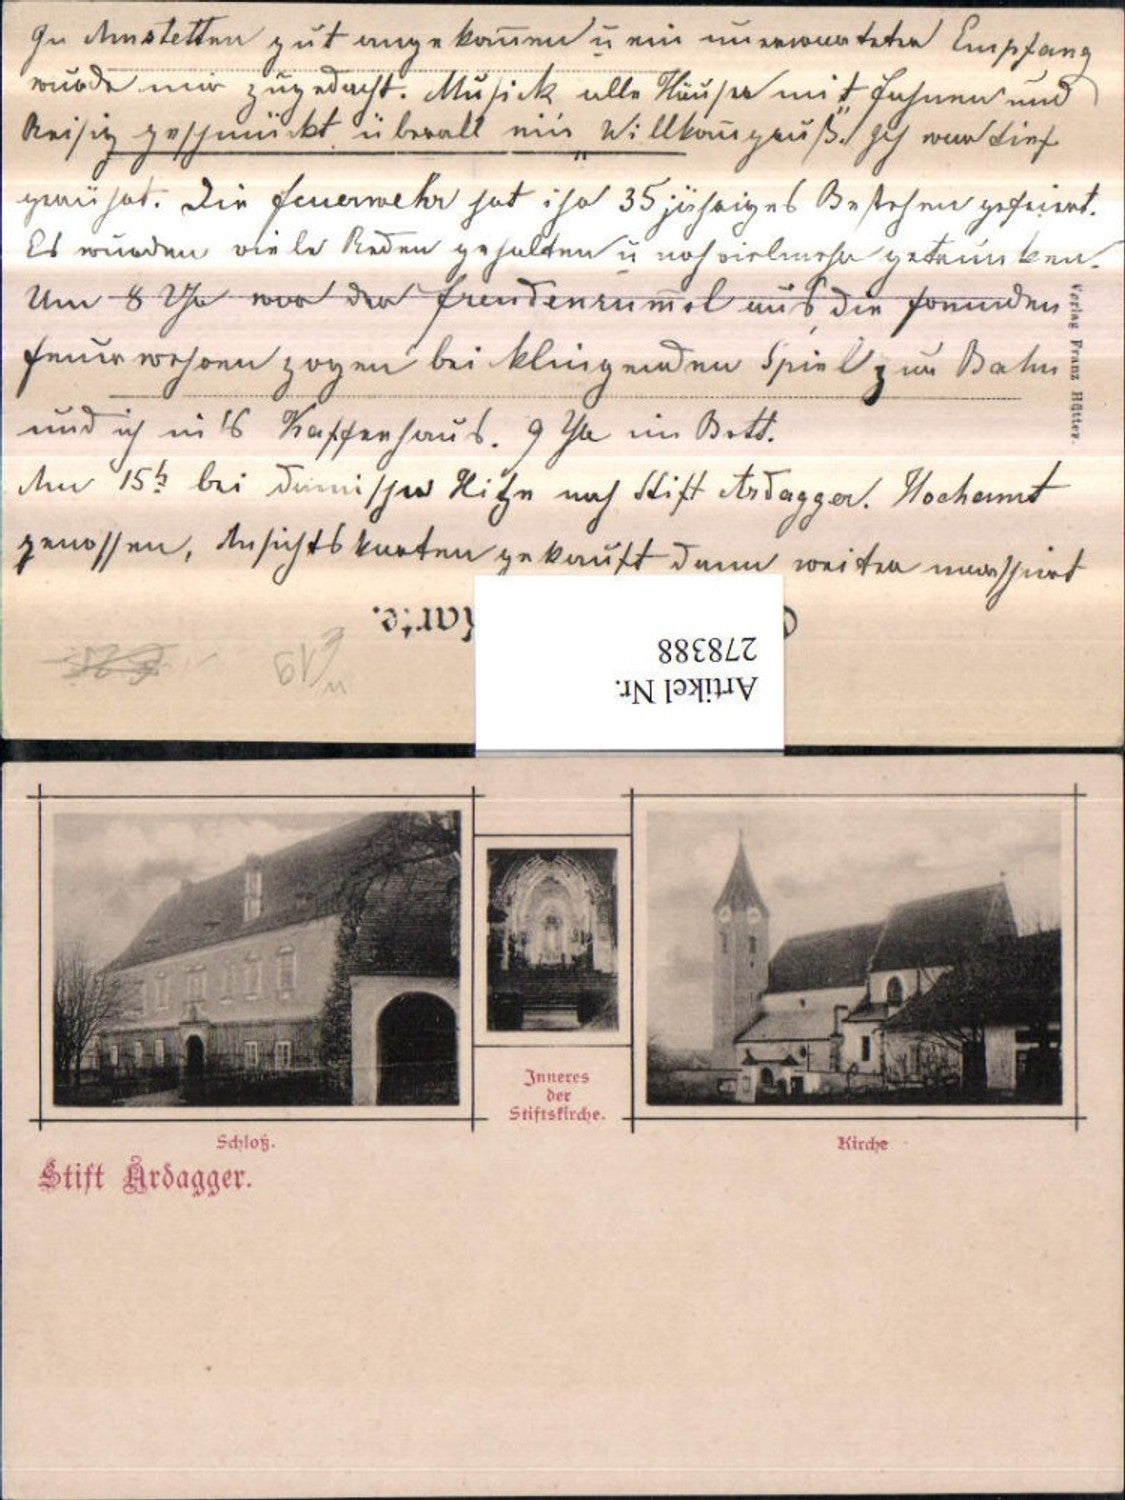 In Amstetten gut angekom̅en u̅ ein unerwarteter Empfang
wurde mir zugedacht. Musick alle Häuser mit Fahnen und
Reisig geschmückt überall ein „Willkom̅gruß". Ich war tief
gerührt. Die Feuerwehr hat ihr 35 jähriges Bestehen gefeiert.
Es wurden viele Reden gehalten u̅ noch vielmehr getrunken.
Um 8 Uhr war der Freudenrum̅el aus, die fremden
Feuerwehren zogen bei klingenden Spiel zur Bahn
und ich in's Kaffeehaus. 9 Uhr im Bett.
Am 15t. bei damischer Hitze nach Stift Ardagger. Hochamt
genossen, Ansichtskarten gekauft dann weiter marschirt
Verlag Franz Hütter.
Karte.
Artikel Nr.
278388
Schloß.
Inneres
der
Stiftskirche.
Kirche
Stift Ardagger.